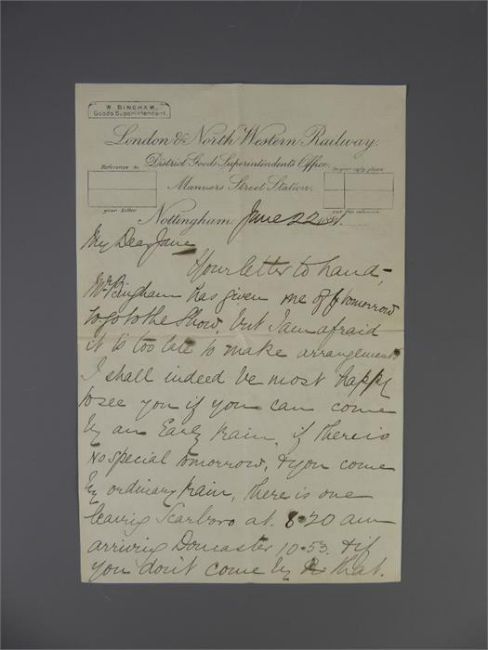 W. BINGHAM,
Goods Superintendent.
London & North Western Railway.
District Goods Superintendent's Office,
Reference to
In your reply please
Manners Street Station.
your letter
quote this reference
Nottingham, June 22 1891.
My Dear Jane
Your letter to hand,
Mr Bingham has given me off tomorrow
to go to the Show, but I am afraid
it is too late to make arrangements
I shall indeed be most happy
to see you if you can come
by an Early train, if there is
no special tomorrow, & you come
by ordinary train, there is one
leaving Scarboro at 8-20 am
arriving Doncaster 10-53. & if
you don't come by that.